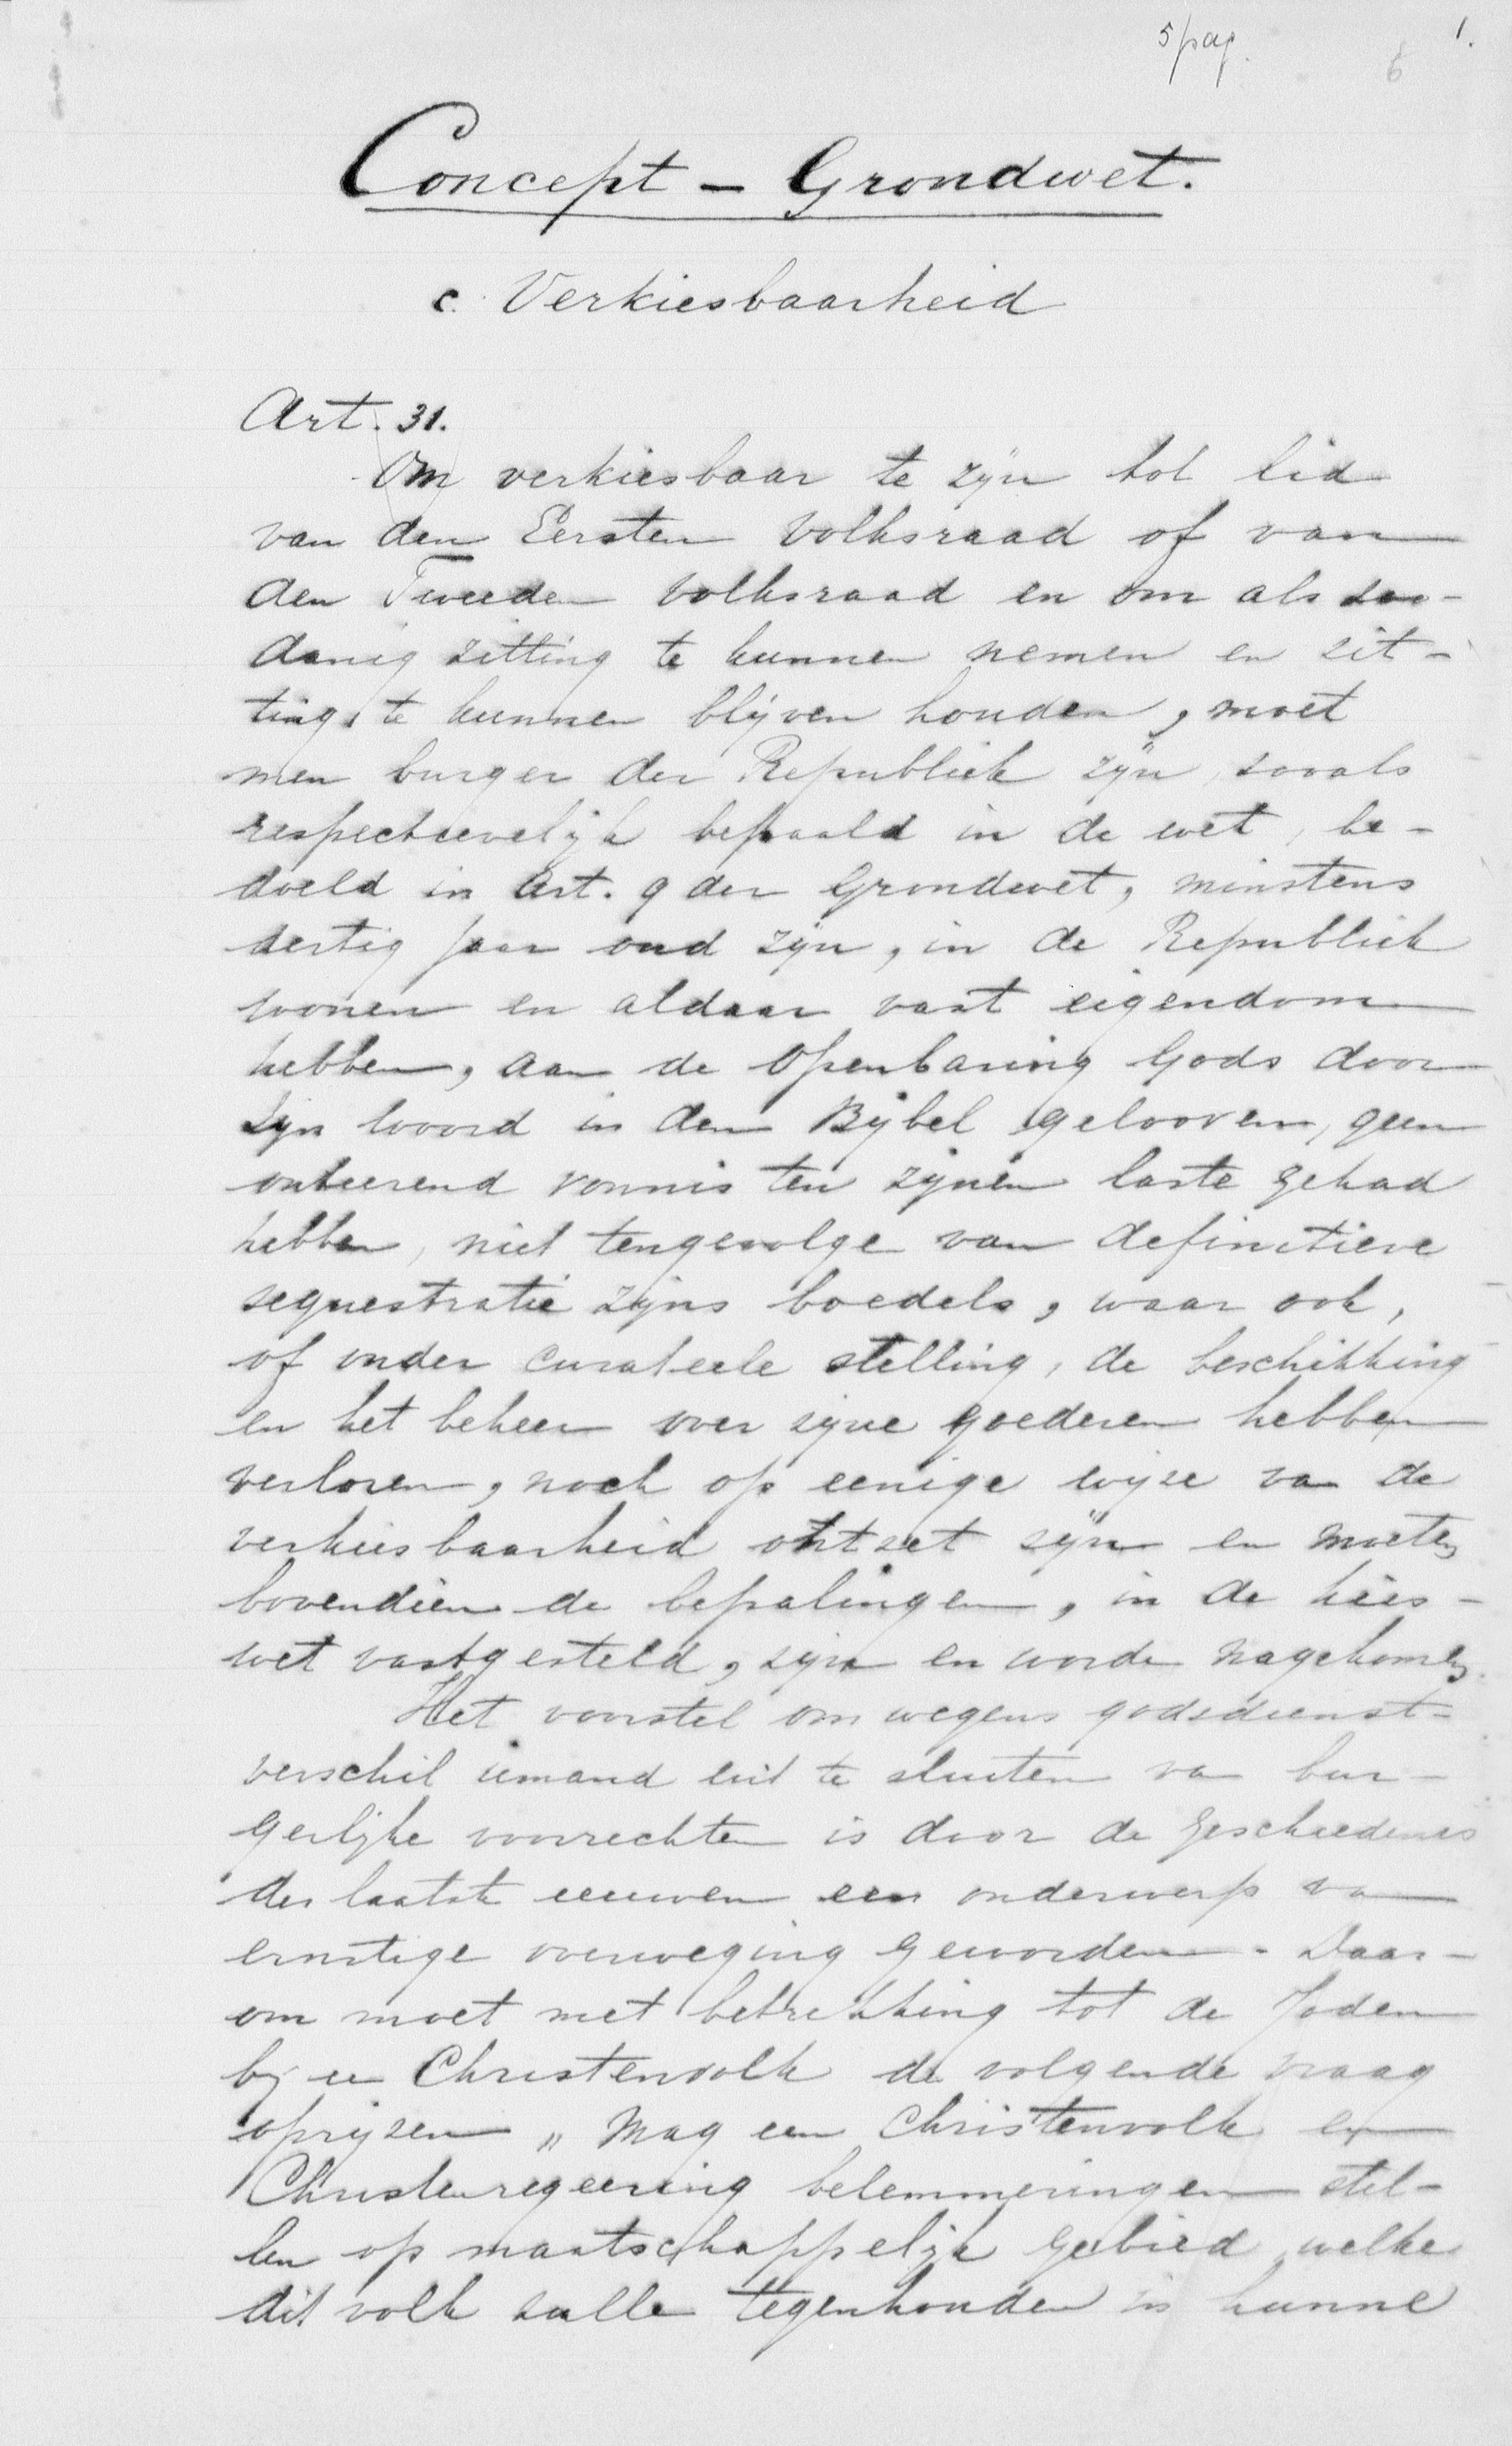 5 pag. 1.
6
Concept - Grondwet.
c. Verkiesbaarheid
Art. 31.
Om verkiesbaar te zijn tot lid
van den Eersten Volksraad of van
den Tweeden Volksraad en om als zoo-
danig zitting te kunnen nemen en zit-
ting te kunnen blijven houden, moet
men burger der Republiek zijn, zooals
respectievelijk bepaald in de wet, be-
doeld in Art. 9 der Grondwet, minstens
dertig jaar oud zijn, in de Republiek
wonen en aldaar vast eigendom
hebben, aan de Openbaring Gods door
Zijn Woord in den Bijbel gelooven, geen
onteerend vonnis ten zijnen laste gehad
hebben, niet tengevolge van definitieve
sequestratie zijns boedels, waar ook,
of onder curateele stelling, de beschikking
en het beheer over zijne goederen hebben
verloren, noch op eenige wijze van de
verkiesbaarheid ontzet zijn en moeten
bovendien de bepalingen, in de kies-
wet vastgesteld, zijn en worden nagekomen.
Het voorstel om wegens godsdienst-
verschil iemand uit te sluiten van bur-
gerlijke voorrechten is door de geschiedenis
der laatste eeuwen een onderwerp van
ernstige overweging geworden. Daar-
om moet met betrekking tot de Joden
bij een Christenvolk de volgende vraag
oprijzen „Mag een Christenvolk en
Christenregeering belemmeringen stel-
len op maatschappelijk gebied, welke
dit volk zullen tegenhouden in hunne